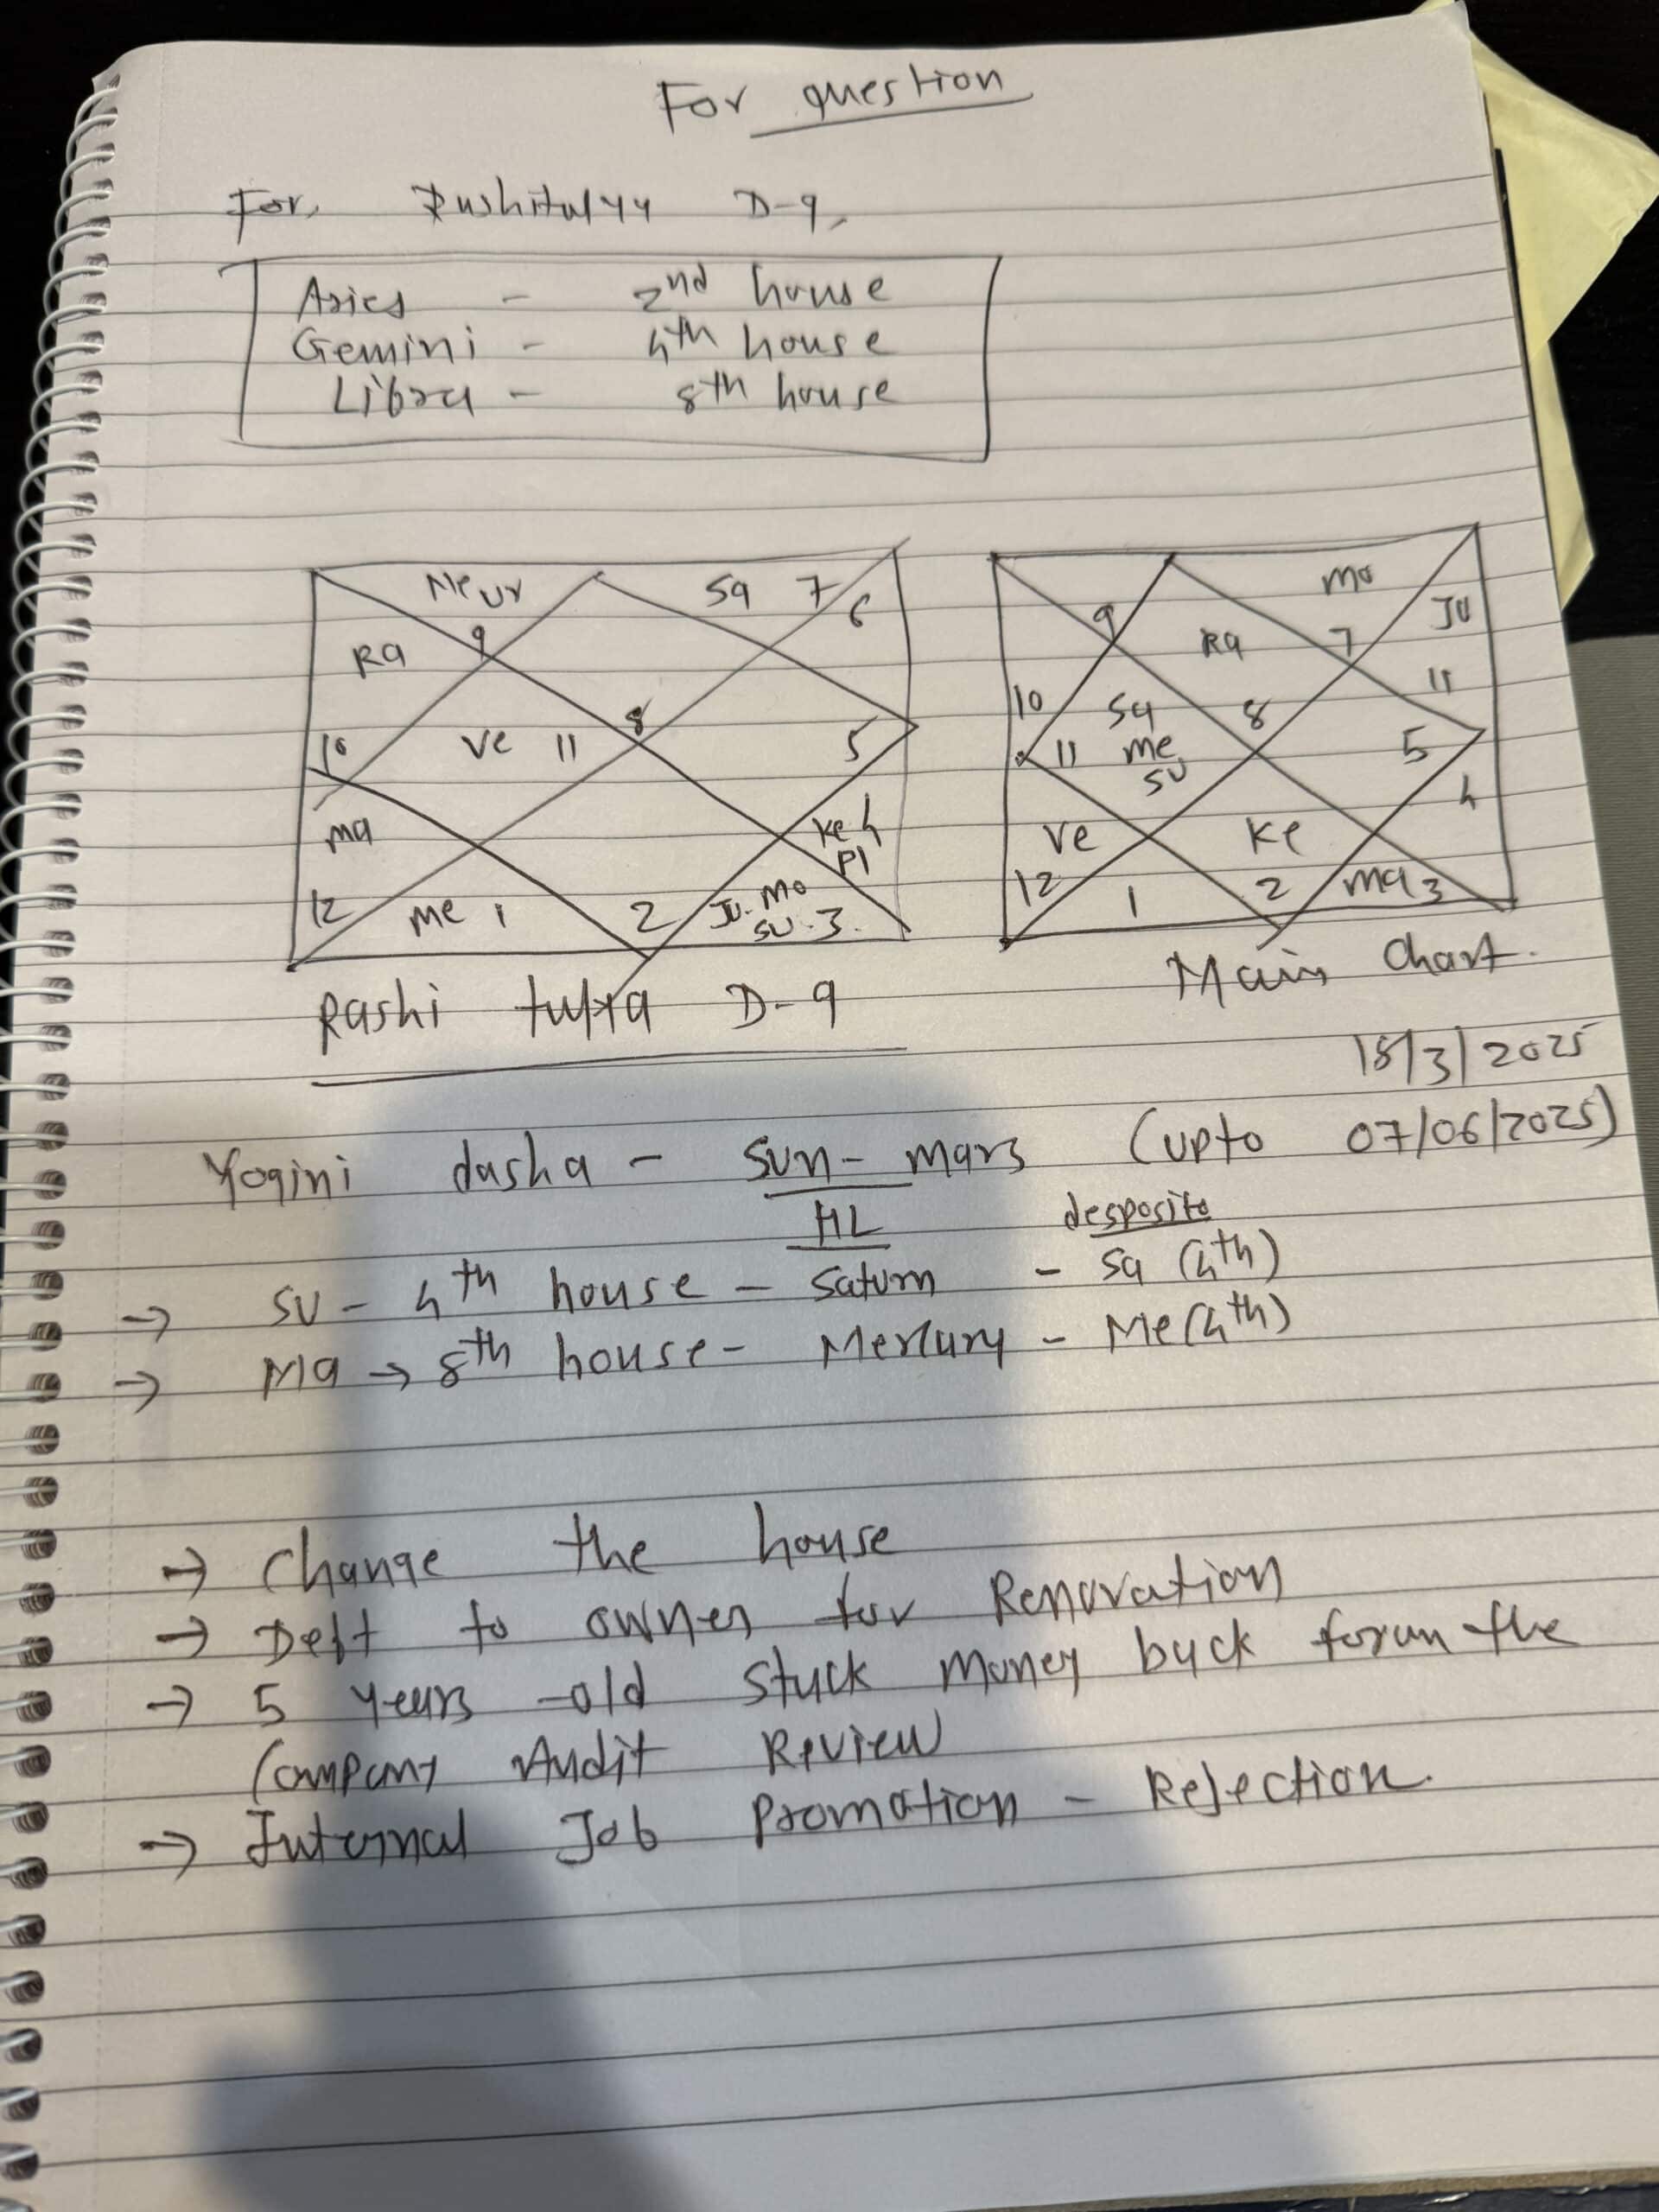 For question
For, Rushitulya D-9,
Aries - 2nd house
Gemini - 4th house
Libra - 8th house
Ne Ur 9
Sa 7
6
Ra 10
8
Ve 11
5
Ma 12
Ke 4 Pl
Me 1
2
Ju. Mo Su. 3.
Rashi tulya D-9
9
Ra 8
Mo 7
Ju 11
10
Sa Me Su 11
5
4
Ve 12
1
Ke 2
Ma 3
Main Chart.
18/3/2025
Yogini dasha - Sun - mars (upto 07/06/2025)
HL desposito
→ SU - 4th house - Saturn - Sa (4th)
→ Ma → 8th house - Mercury - Me (4th)
→ Change the house
→ Deft to owner for Renovation
→ 5 years -old stuck money back forum the
Company Audit Review
→ Internal Job Promotion - Rejection.